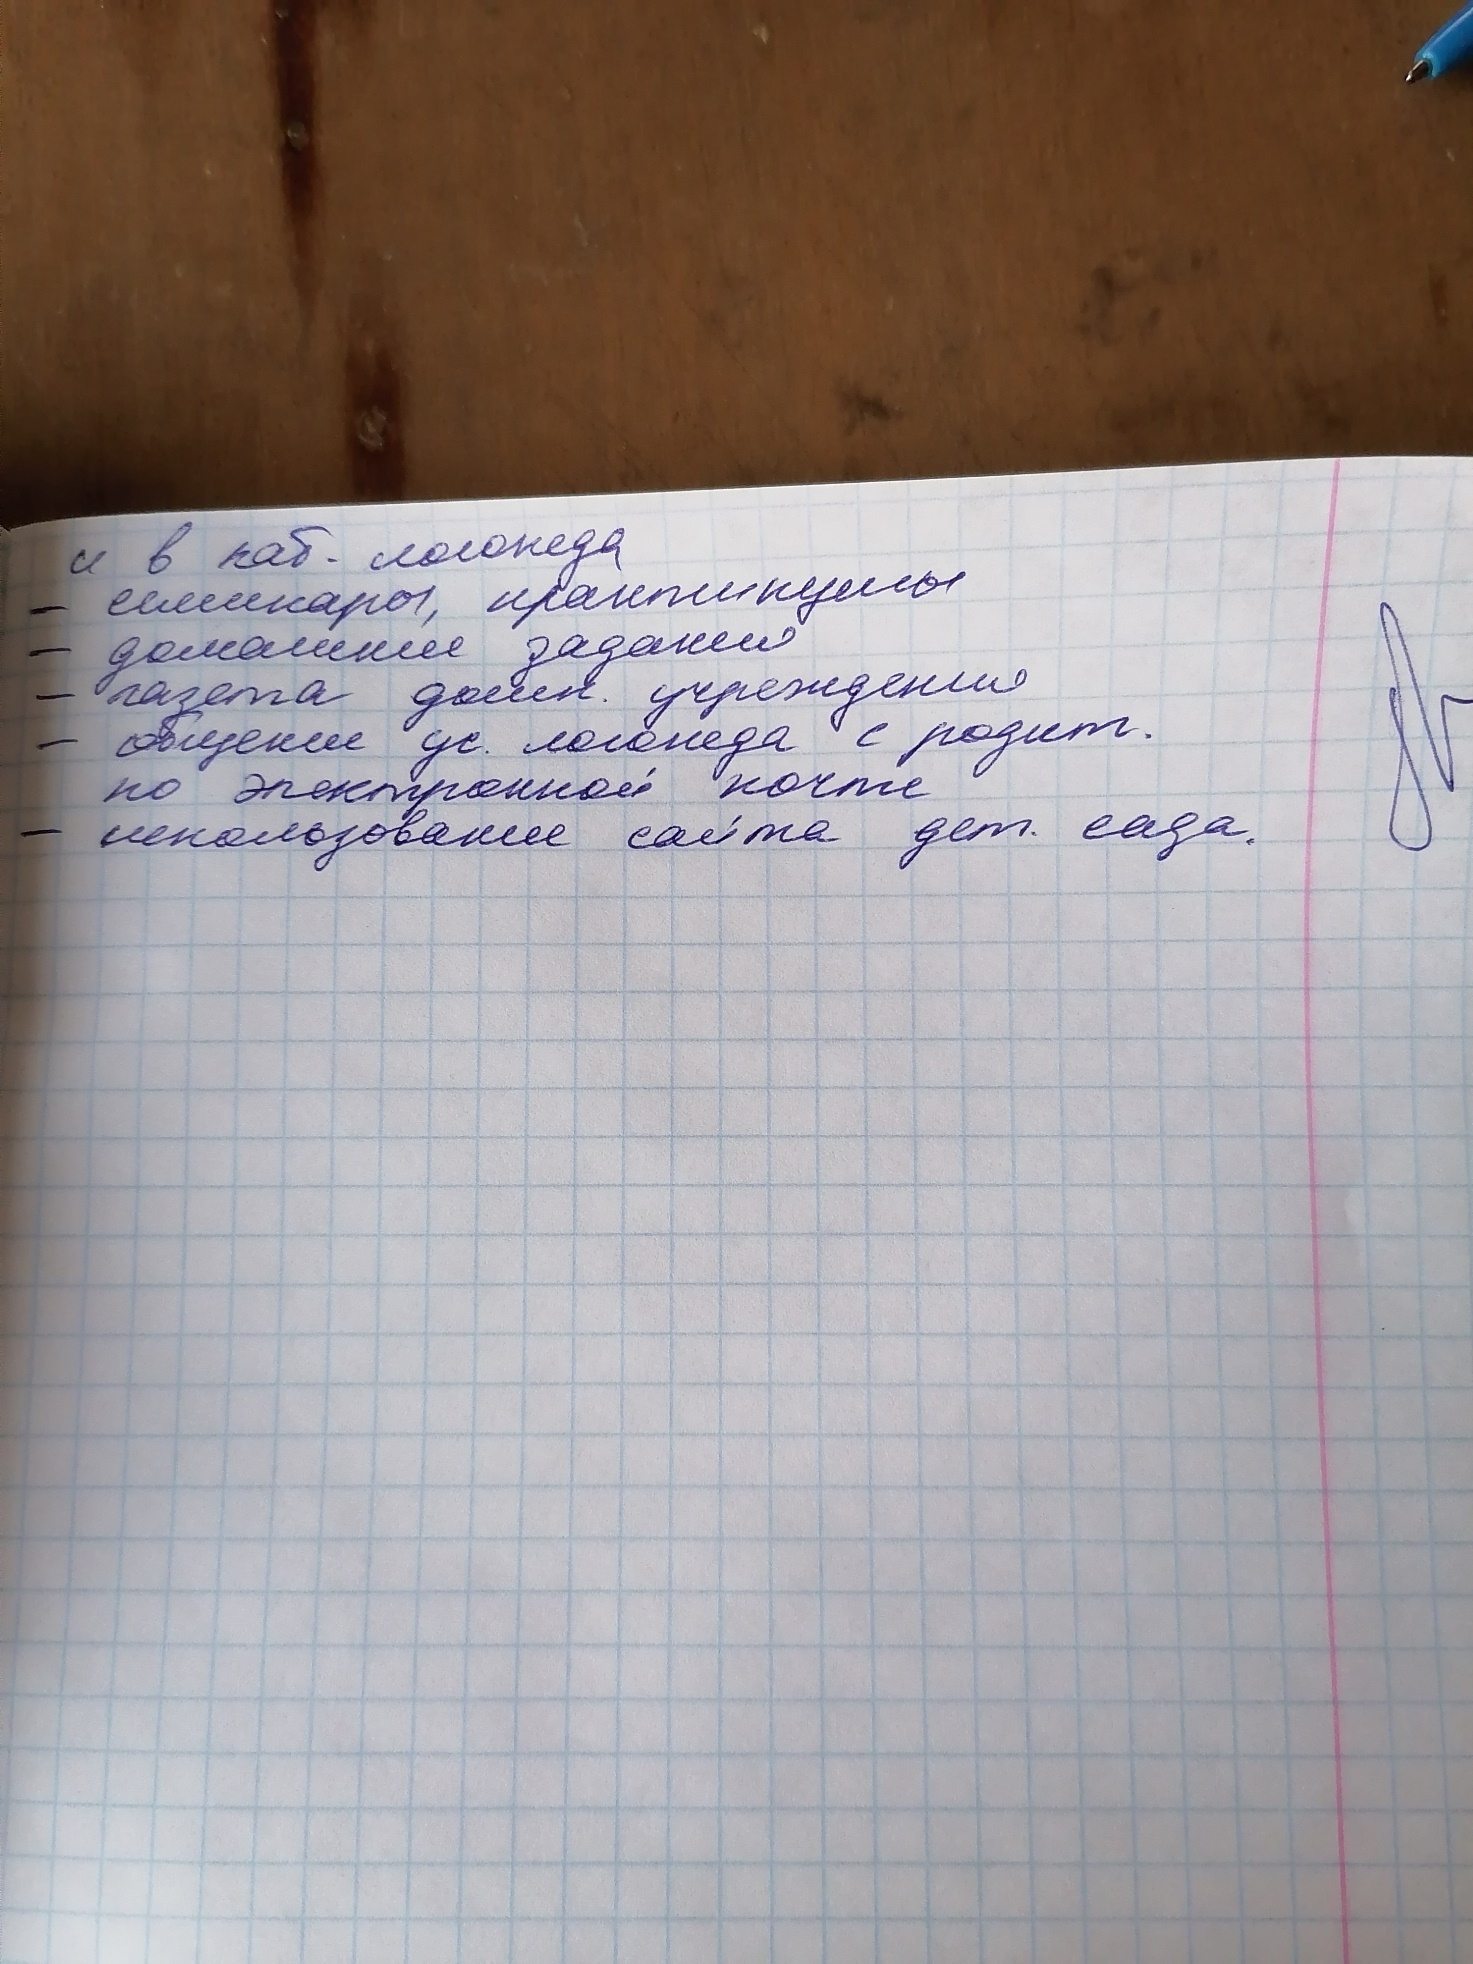 и в каб. логопеда
- семинары, практикумы
- домашние задания
- газета дошк. учреждения
- общение уч. логопеда с родит.
по электронной почте
- использование сайта дет. сада.